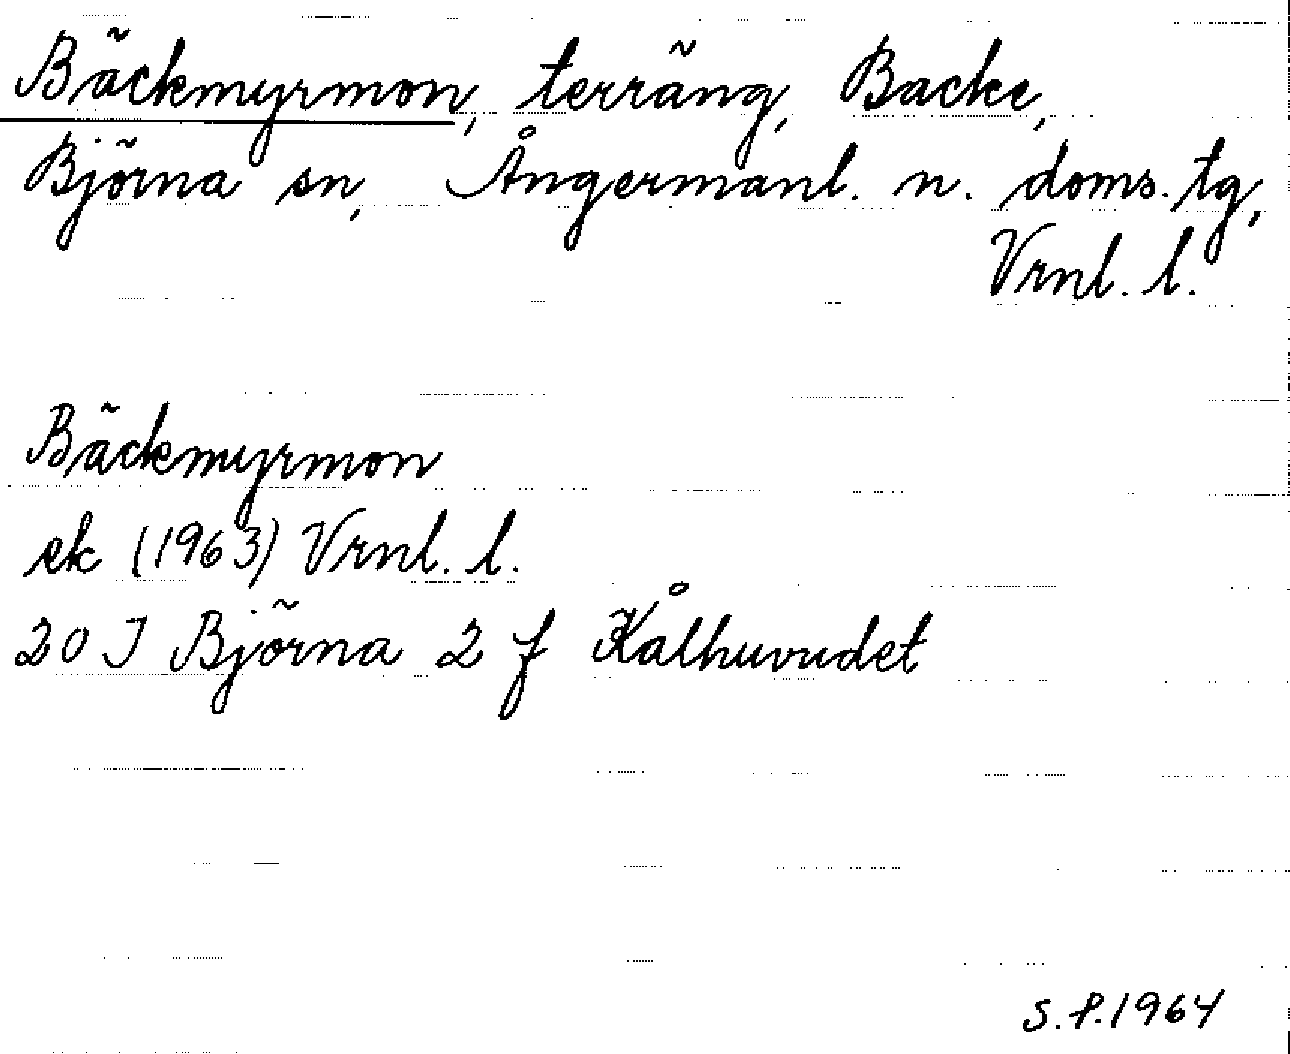 Bäckmyrmon, terräng, Backe,
Björna sn, Ångermanl. n. doms. tg,
Vrnl. l.
Bäckmyrmon
ek (1963) Vrnl. l.
20 J Björna 2 f Kålhuvudet
S. P. 1964